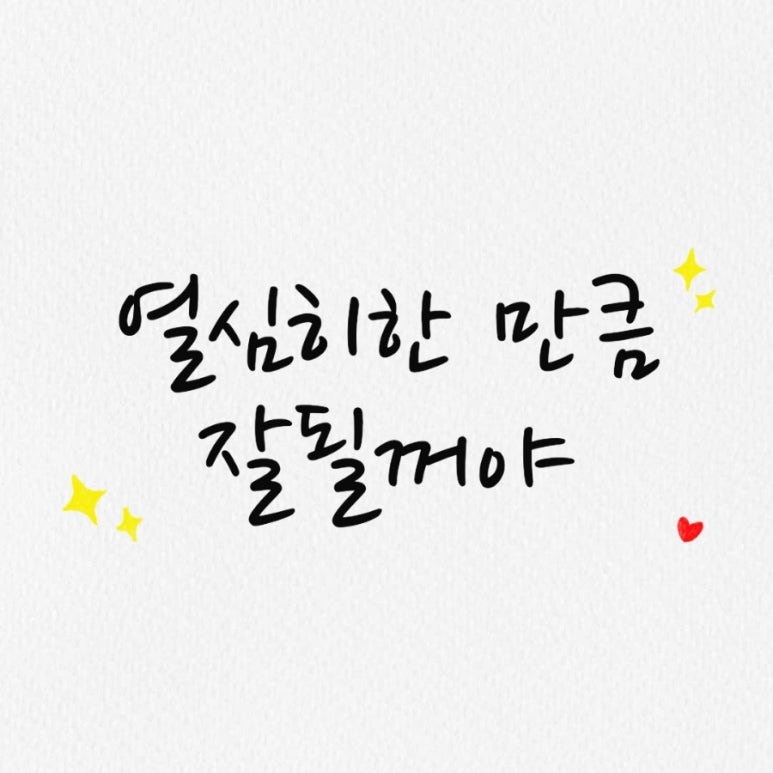 열심히한 만큼
잘될꺼야